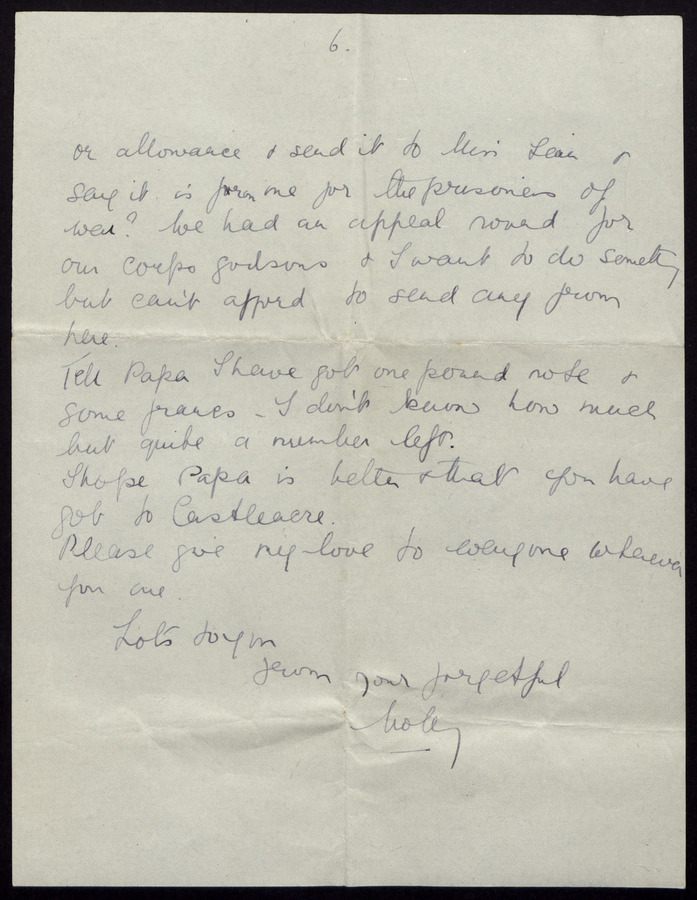 6.
or allowance & send it to Miss &
say it is from me for the prisoners of
war? We had an appeal round for
our Corps godsons & I want to do something
but can't afford to send any from
here.
Tell Papa I have got one pound note &
some francs - I don't know how much
but quite a number left.
I hope Papa is better & that you have
got to Castleacre.
Please give my love to everyone wherever
you are.
Lots to you
from your forgetful